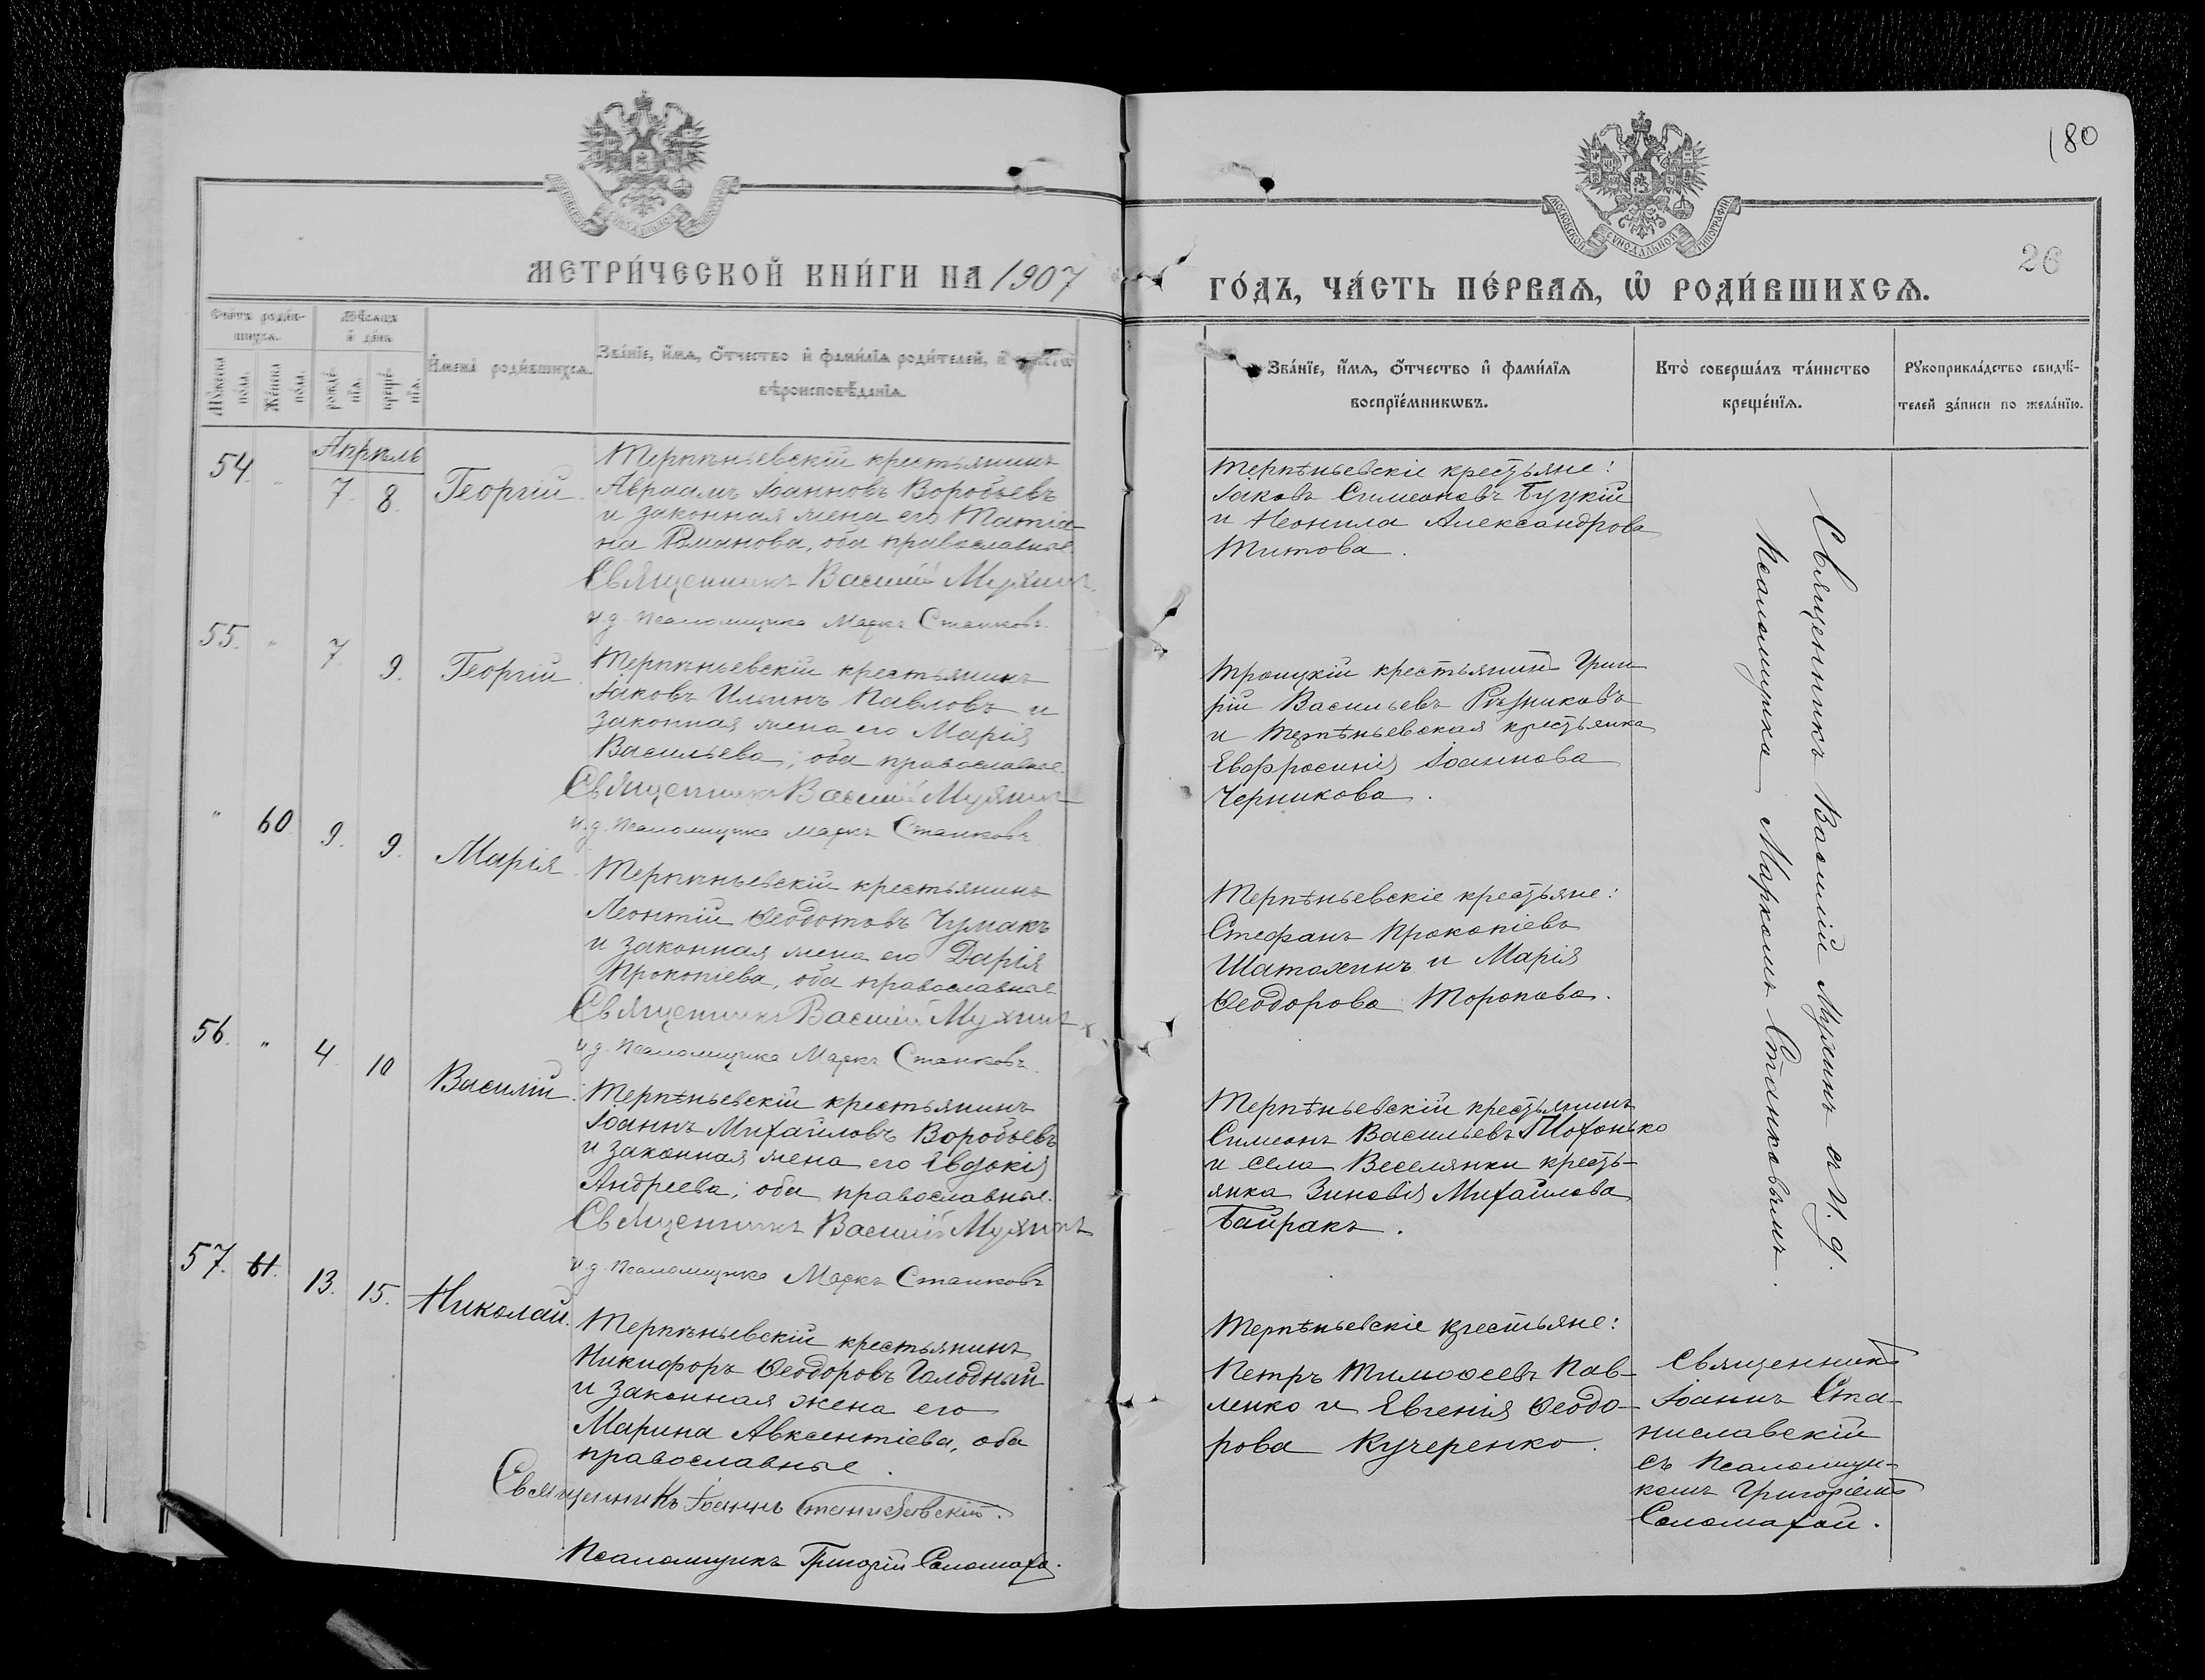 180
26
МЕТРИ́ЧЕСКОЙ КНИ́ГИ НА 1907
ГО́ДЪ, ЧА́СТЬ ПЕ́РВАѦ, Ѡ҆ РОДИ́ВШИХСѦ.
Сче́тъ роди́в-
шихсѧ.
Мѣ́сѧцъ
и҆ де́нь
Му́жеска
по́ла.
Же́нска
по́ла.
рожде́-
нїѧ.
креще́-
нїѧ.
И҆мена̀ роди́вшихсѧ.
Зва́нїе, и҆́мѧ, ѻ҆́тчество и҆ фами́лїѧ роди́телей, и҆
вѣроисповѣ́данїѧ.
Зва́нїе, и҆́мѧ, ѻ҆́тчество и҆ фами́лїѧ
воспрїе́мникѡвъ.
Кто̀ соверша́лъ та́инство
креще́нїѧ.
Рꙋкоприкла́дство свидѣ́-
телей за́писи по жела́нїю.
Апрѣль
54. " 7. 8. Георгій.
Терпѣньевскій крестьянинъ
Авраамъ Іоанновъ Воробьевъ
и законная жена его Татіа-
на Романова, оба православные.
Священникъ Василій Мухинъ.
и.д. псаломщика Маркъ Станковъ.
Терпѣньевскіе крестьяне:
Іаковъ Симеоновъ Буцкій
и Неонила Александрова
Титова.
55. " 7. 9. Георгій.
Терпѣньевскій крестьянинъ
Іаковъ Ильинъ Павловъ и
законная жена его Марія
Васильева; оба православные.
Священникъ Василій Мухинъ
и.д. псаломщика Маркъ Станковъ.
Троицкій крестьянинъ
рій Васильевъ Рѣзниковъ
и Терпѣньевская крестьянка
Евфросинія Іоаннова
Черникова.
" 60 9. 9. Марія.
Терпѣньевскій крестьянинъ
Леонтій Ѳеодотовъ Чумакъ
и законная жена его Дарія
Прокопіева, оба православные.
Священникъ Василій Мухинъ
и.д. псаломщика Маркъ Станковъ.
Терпѣньевскіе крестьяне:
Стефанъ Прокопіевъ
Шатохинъ и Марія
Ѳеодорова Торопова.
56. " 4 10 Василій.
Терпѣньевскій крестьянинъ
Іоаннъ Михаиловъ Воробьевъ
и законная жена его Евдокія
Андреева; оба православные.
Священникъ Василій Мухинъ
и.д. псаломщика Маркъ Станковъ
Терпѣньевскій крестьянинъ
Симеонъ Васильевъ
и села Веселянки кресть-
янка Зиновія Михаилова
Байракъ.
Священникъ Василій Мухинъ съ и. д.
псаломщика Маркомъ Станковымъ.
57. 61. 13. 15. Николай.
Терпѣньевскій крестьянинъ
Никифоръ Ѳеодоровъ Голодный
и законная жена его
Марина Авксентіева, оба
православные.
Священникъ Іоаннъ Станиславскій.
Псаломщикъ Григорій Соломаха.
Терпѣньевскіе крестьяне:
Петръ Тимоѳеевъ Пав-
ленко и Евгенія Ѳеодо-
рова Кучеренко.
Священникъ
Іоаннъ Ста-
ниславскій
съ псаломщи-
комъ Григоріемъ
Соломахой.